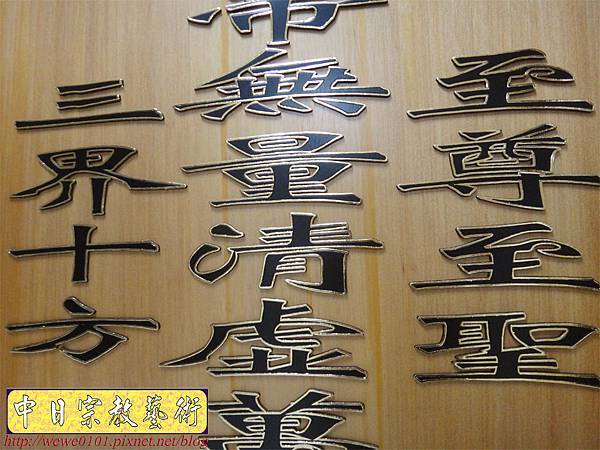 至尊至聖
帝無量清虛萬
三界十方
中日宗教藝術
http://wewe0101.pixnet.net/blog